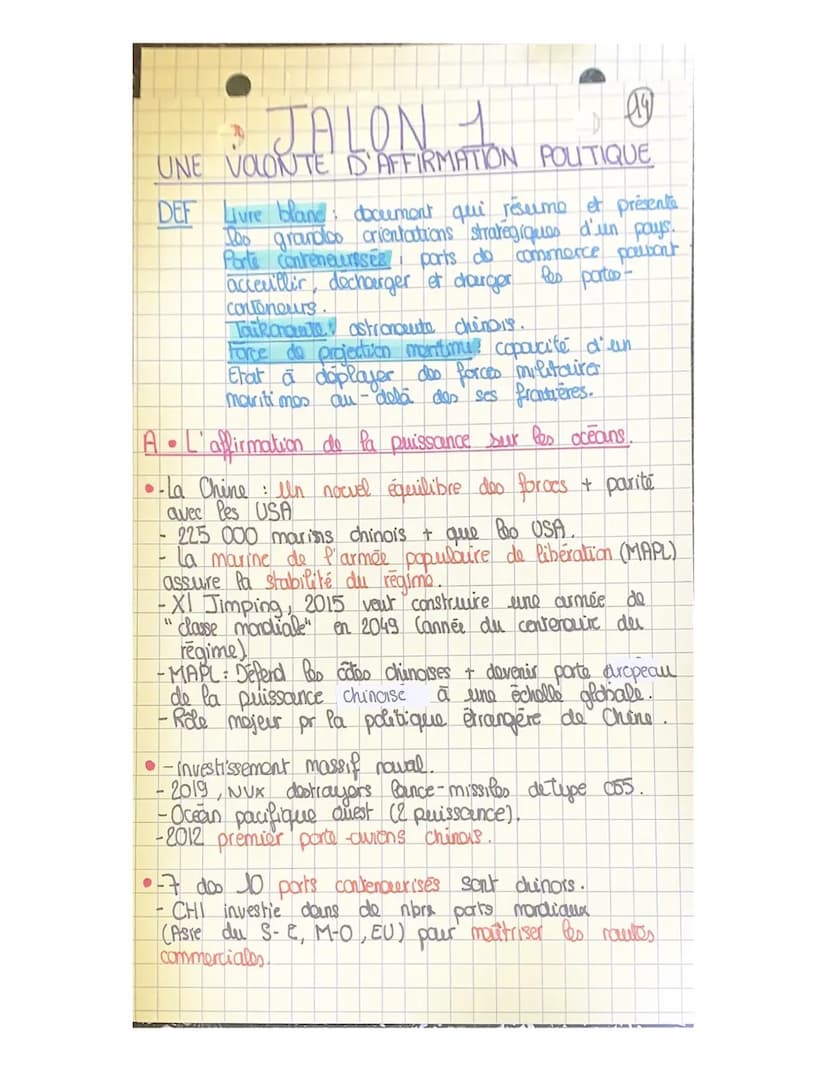 14
JALON 1
UNE VOLONTÉ D'AFFIRMATION POLITIQUE
DEF Livre blanc : document qui résume et présente
les grandes orientations stratégiques d'un pays.
Ports conteneurisés : ports de commerce pouvant
acceuillir, décharger et charger les portes-
conteneurs.
Taïkonaute : astronaute chinois.
Force de projection maritime : capacité d'un
Etat à déployer des forces militaires
maritimes au-delà des ses frontières.
A • L'affirmation de la puissance sur les océans.
• - La Chine : Un nouvel équilibre des forces + parité
avec les USA
- 225 000 marins chinois + que les USA.
- La marine de l'armée populaire de libération (MAPL)
assure la stabilité du régime.
- XI Jimping, 2015 veut construire une armée de
"classe mondiale" en 2049 (année du centenaire du
régime)
- MAPL : Défend les côtes chinoises + devenir porte
de la puissance chinoise à une échelle globale.
- Rôle majeur pr la politique étrangère de Chine.
• - investissement massif naval.
- 2019, NVX destroyers lance-missiles de type 055.
- Océan pacifique ouest (2 puissance).
- 2012 premier porte-avions chinois.
• - 7 des 10 ports conteneurisés sont chinois.
- CHI investie dans de nbrx ports mondiaux
(Asie du S-E, M-O, EU) pour maîtriser les routes
commerciales.